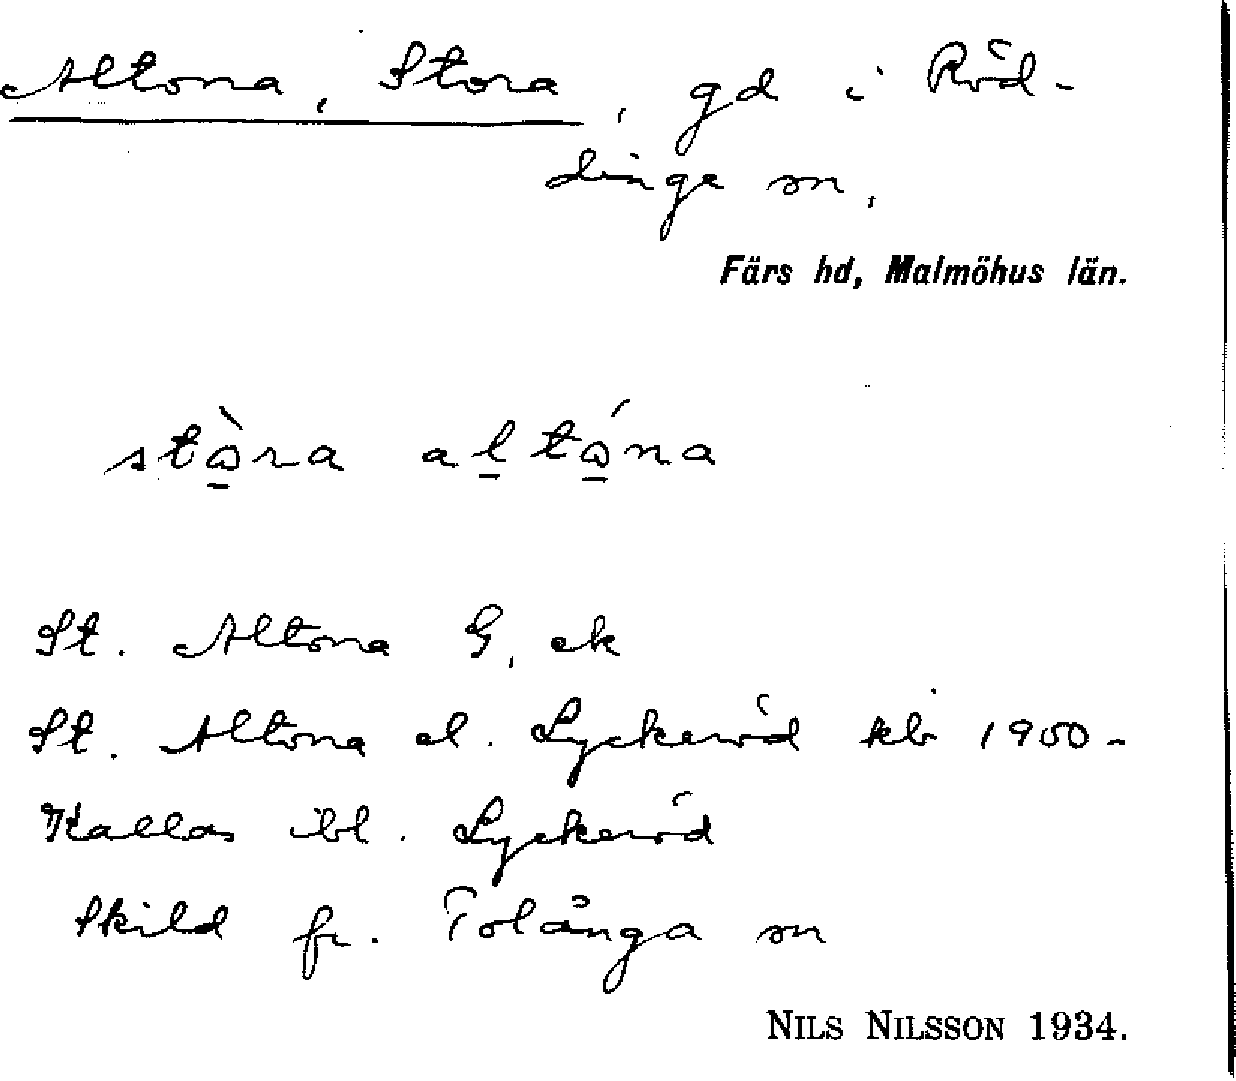 Altona, Stora, gd i Röd-
dinge sn,
Färs hd, Malmöhus län.
stò̱ra al̲tó̱na
St. Altona G, ek
St. Altona el. Lyckeröd kb 1900-
Kallas ibl. Lyckeröd
Skild fr. Tolånga sn
NILS NILSSON 1934.